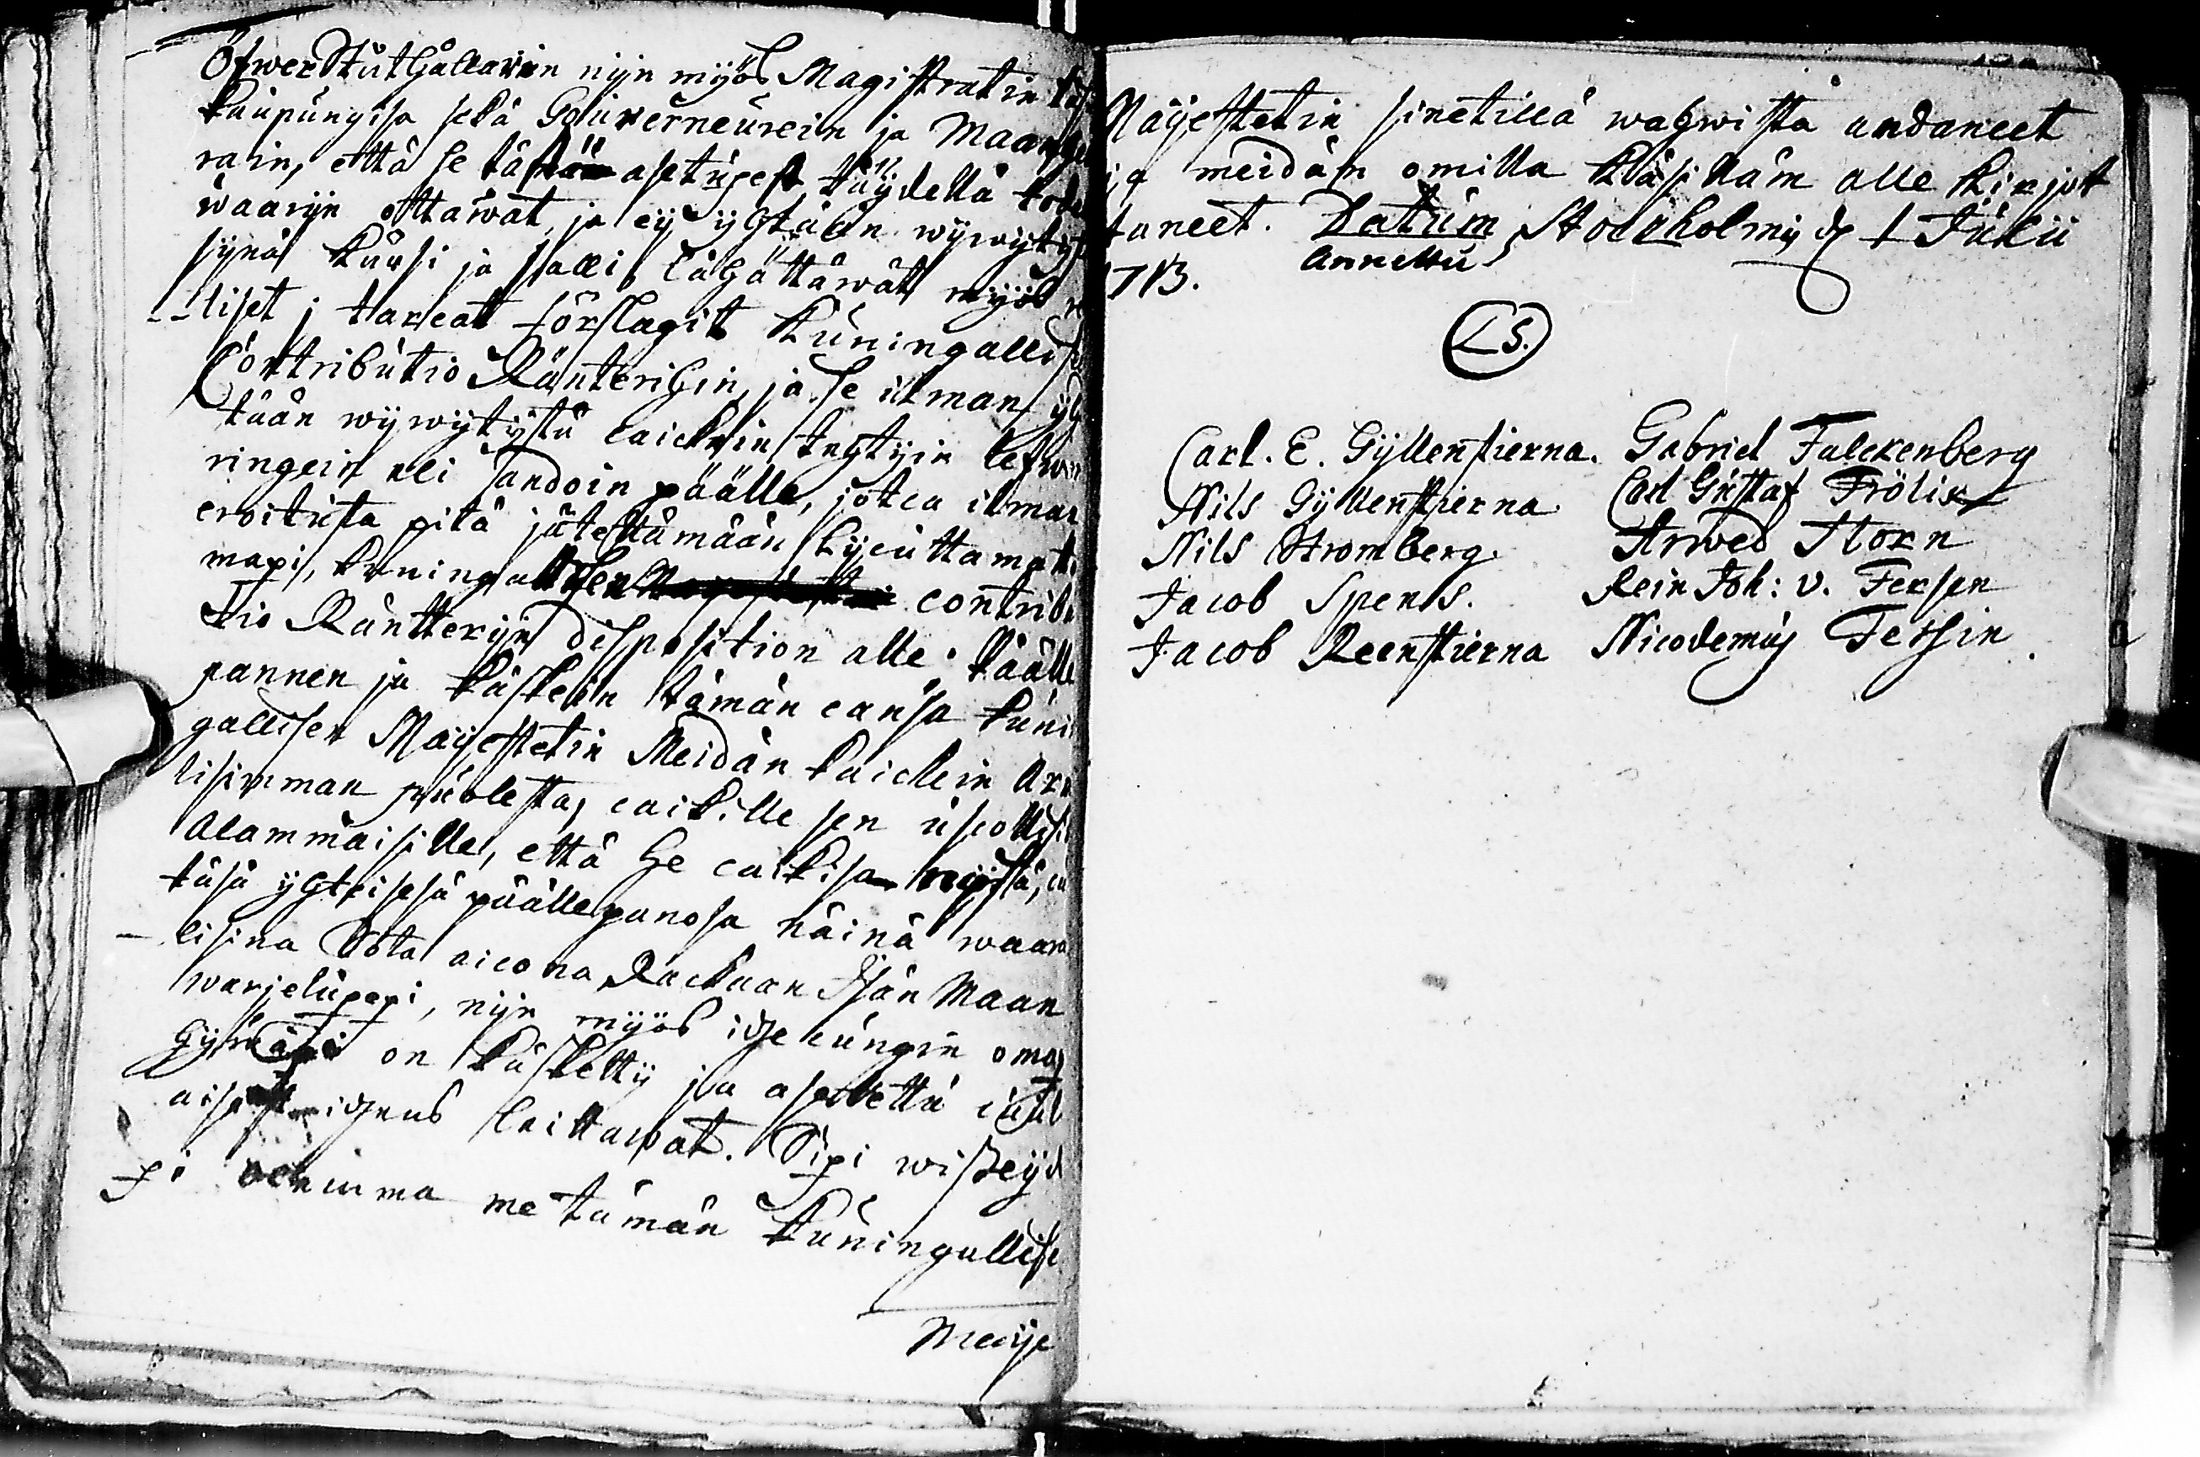 Öfwer Ståthållarin nijn myös Magistratin
kaupungisa sekä Gouverneurein ja Maan
rain, että he tästä asetuxest täydellä
waarijn ottawat, ja ej yhtään wijwytys
synä kuusi ja salli, lähättäwät myös
liset ja tarcat förslagit Kuningallise
Contributio Ränterihin, ja se ilman yh
tään wijwytystä caickein tehtyin lefwe
ringein eli Sandoin päälle, jotca ilman
eroitusta pitä jätettämään lijcuttamat
maxi, kuningallisen contribu
tio Räntterijn disposition alle. Käälle
pannen ja käskein tämän cansa Kunin
gallisen Maijestetin Meidän kaickein Ar
lisimman puolesta, caikille sen uscollis
Alammaisille, että he caikisa mystä,
täsä yhteisesä päällepanosa näinä waara
lisina Sota aicona Rackaan Isän Maan
warjeluxexi, nijn myös idzecungin oma
hywäxi on käsketty ja asetettu
aisest idzens laittawat. Sixi wisseyd
xi olemma me tämän Kuningallise
Maije
Maijestetin sinetillä wahwista andaneet
ja meidän omilla Käsilläm alle kirjot
taneet. Datum Stockholmis d 1 Julii
Annettu
1713.
L S.
Carl. E. Gyllenstierna. Gabriel Falckenberg
Nils Gyllenstierna Carl Gustaf Frölik
Nils Stromberg. Arwed Horn
Jacob Spens. Rein Joh: v. Fersen
Jacob Reenstierna Nicodemus Tessin.